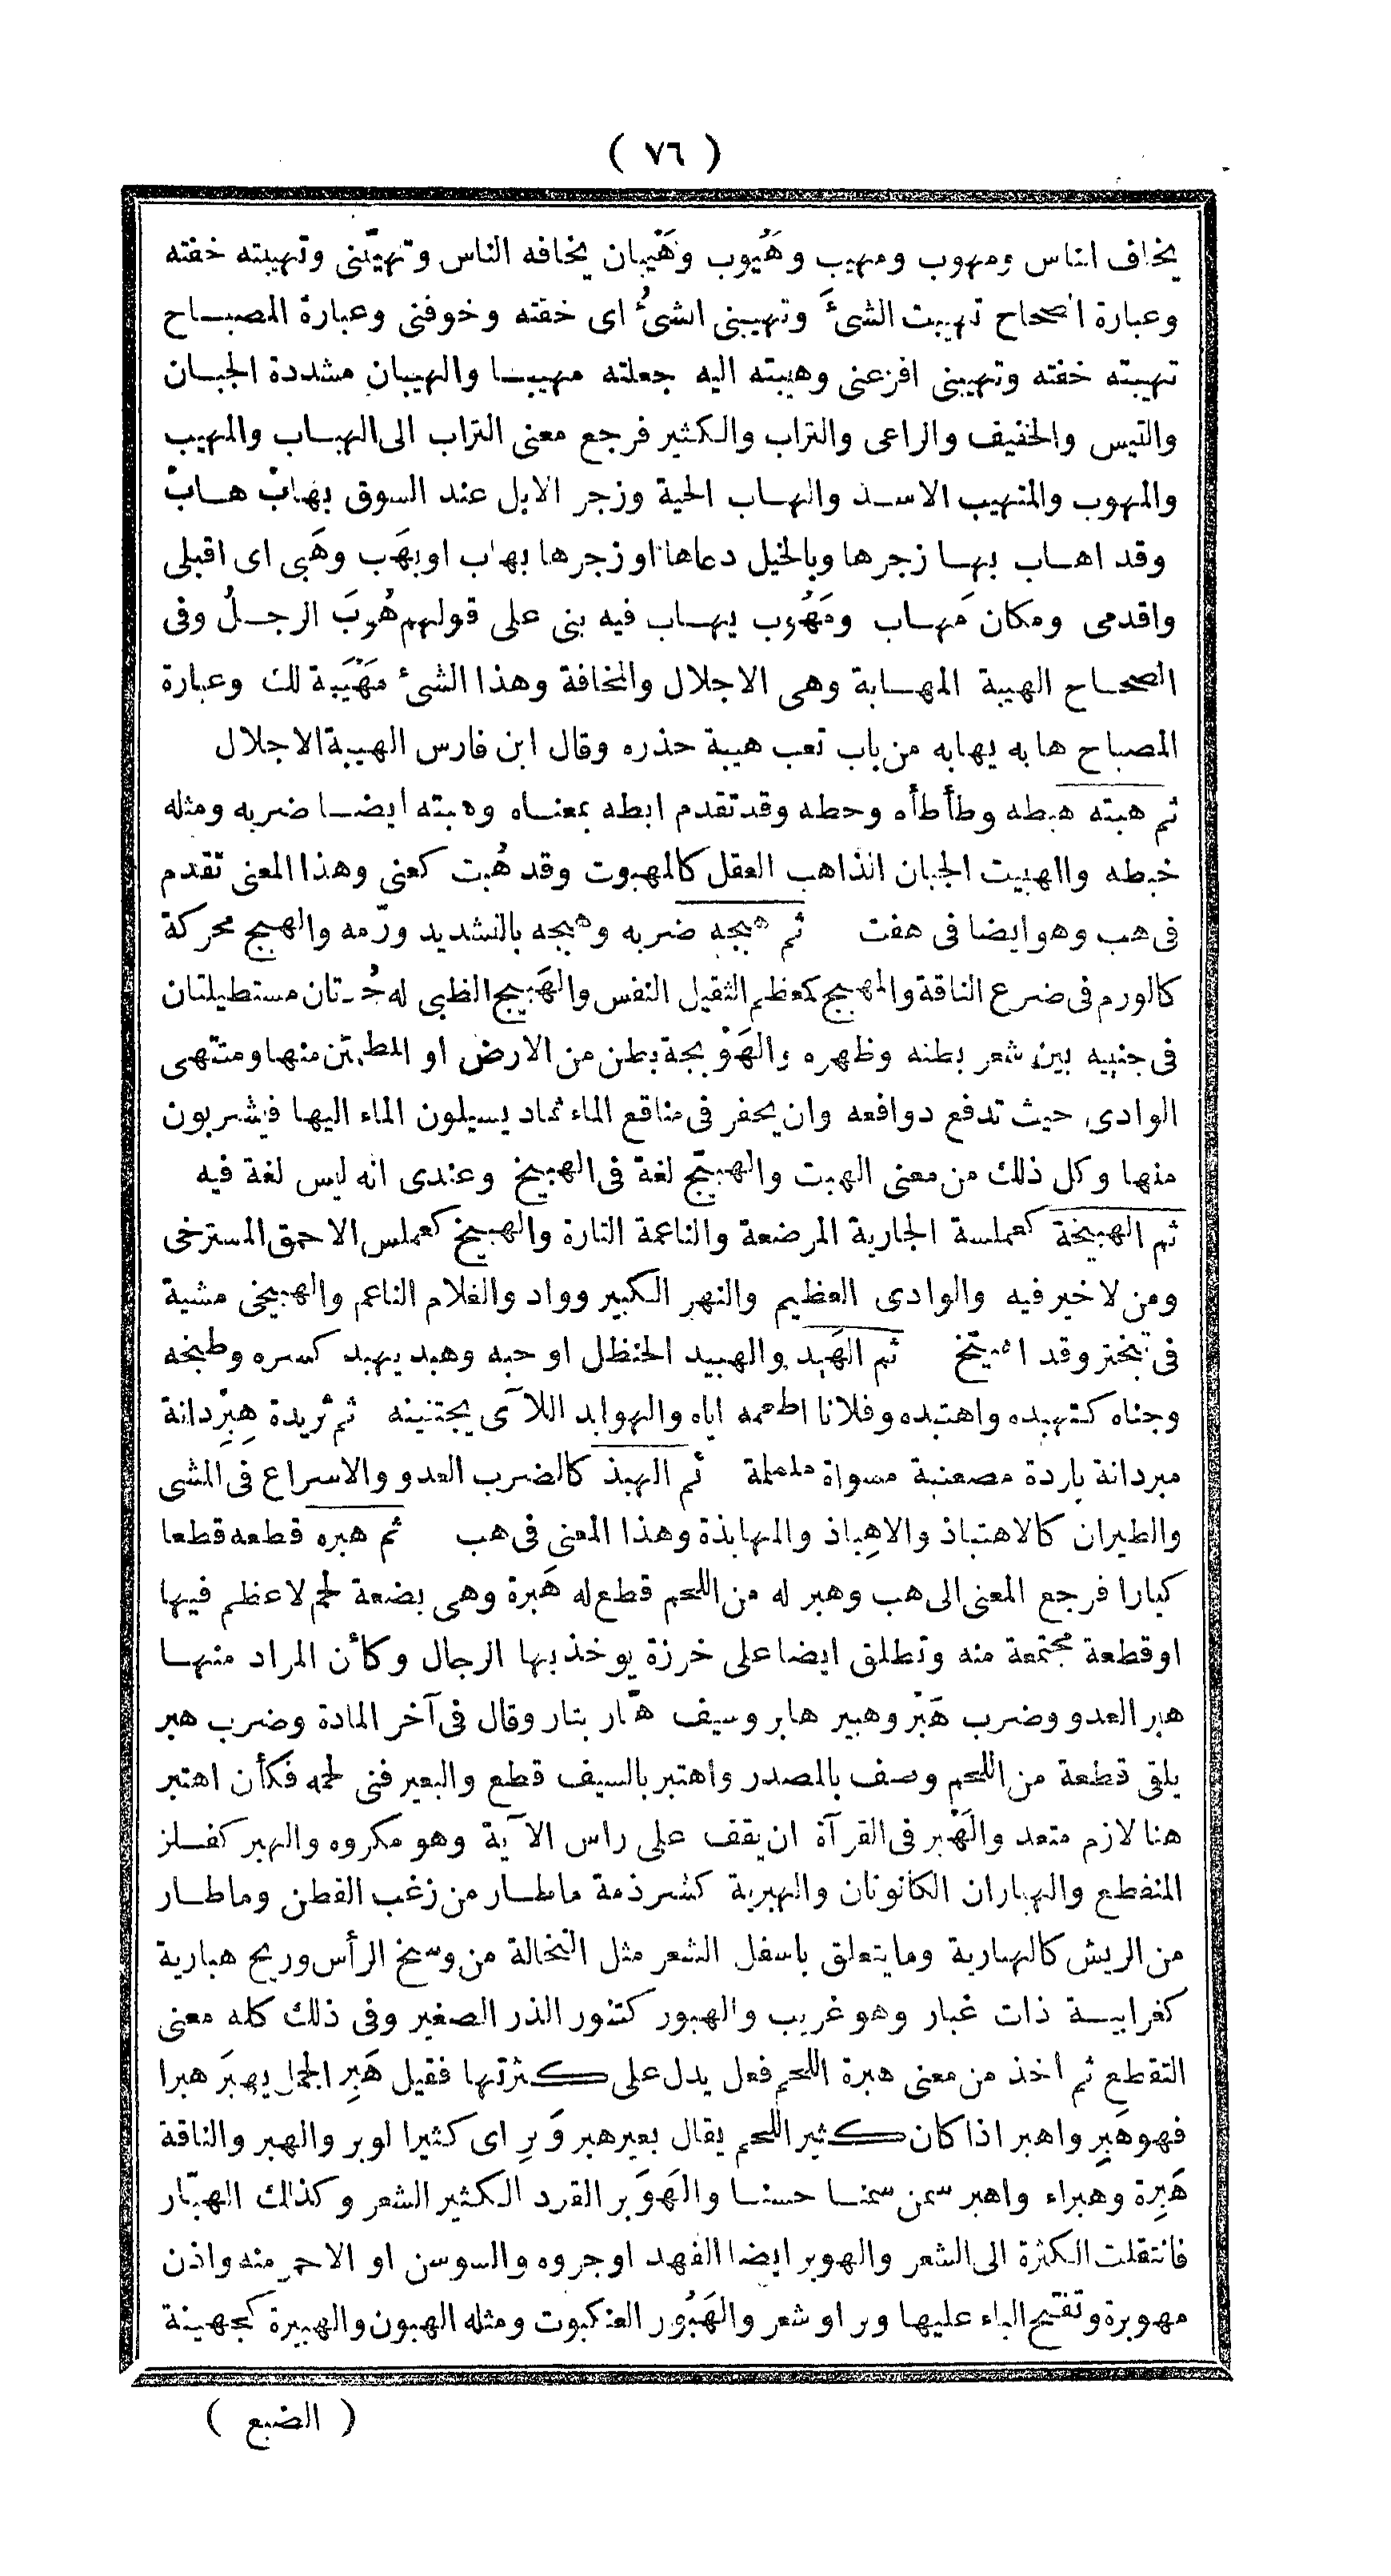 ( ٧٦ )
يخاف الناس ومهوب ومهيب وهَيُوب وهَيْبان يخافه الناس وتهيّبنى وتهيبته خفته
وعبارة الصحاح تهيبت الشئَ وتهيبنى الشئُ اى خفته وخوفنى وعبارة المصباح
تهيبته خفته وتهيبنى افزعنى وهيبته اليه جعلته مهيبا والهيبان مشددة الجبان
والتيس والخفيف والراعى والتراب والكثير فرجع معنى التراب الى الهباب والمهيب
والمهوب والمتهيب الاسد والهاب الحية وزجر الابل عند السوق بهابْ هابْ
وقد اهاب بها زجرها وبالخيل دعاها او زجرها بهاب او بهَب وهَبى اى اقبلى
واقدمى ومكان مَهاب ومَهُوب يهاب فيه بنى على قولهم هُوبَ الرجلُ وفى
الصحاح الهيبة المهابة وهى الاجلال والمخافة وهذا الشئ مَهْيَبة لك وعبارة
المصباح هابه يهابه من باب تعب هيبة حذره وقال ابن فارس الهيبة الاجلال
ثم هبته هبطه وطأطأه وحطه وقد تقدم ابطه بمعناه وهبته ايضا ضربه ومثله
خبطه والهبيت الجبان الذاهب العقل كالمهبوت وقد هُبت كعنى وهذا المعنى تقدم
فى هب وهو ايضا فى هفت ثم هبجه ضربه وهبجه بالتشديد ورّمه والهبج محركة
كالورم فى ضرع الناقة والمهبج كمعظم الثقيل النفس والهَبيج الظبى له جُدتان مستطيلتان
فى جنبيه بين شعر بطنه وظهره والهَوْبجة بطن من الارض او المطمئن منها ومنتهى
الوادى حيث تدفع دوافعه وان يحفر فى مناقع الماء ثماد يسيلون الماء اليها فيشربون
منها وكل ذلك من معنى الهبت والهبيّج لغة فى الهبيخ وعندى انه ليس لغة فيه
ثم الهبيخة كعملسة الجارية المرضعة والناعمة التارة والهبيخ كعملس الاحمق المسترخى
ومن لا خير فيه والوادى العظيم والنهر الكبير وواد والغلام الناعم والهبيخى مشية
فى تبختر وقد اهبيّخ ثم الهَبد والهبيد الحنظل او حبه وهبد يهبد كسره وطبخه
وجناه كتهبده واهتبده وفلانا اطعمه اياه والهوابد اللآتى يجتنينه ثم ثريدة هِبِرْدانة
مبردانة باردة مصعنبة مسواة ململمة ثم الهبذ كالضرب العدو والاسراع فى المشى
والطيران كالاهتباذ والاهِباذ والمهابذة وهذا المعنى فى هب ثم هبره قطعه قطعا
كبارا فرجع المعنى الى هب وهبر له من اللحم قطع له هَبرة وهى بضعة لحم لا عظم فيها
او قطعة مجتمعة منه وتطلق ايضا على خرزة يوخذ بها الرجال وكأن المراد منها
هبر العدو وضرب هَبْر وهبير هابر وسيف هبّار بتار وقال فى آخر المادة وضرب هبر
يلقى قطعة من اللحم وصف بالمصدر واهتبر بالسيف قطع والبعير فنى لحمه فكأن اهتبر
هنا لازم متعد والهَبْر فى القرآة ان يقف على راس الآية وهو مكروه والهبر كفلز
المنقطع والهباران الكانونان والهبرية كشرذمة ما طار من زغب القطن وما طار
من الريش كالهبارية وما يتعلق باسفل الشعر مثل النخالة من وسخ الرأس وريح هبارية
كغرابية ذات غبار وهو غريب والهبور كتنور الذر الصغير وفى ذلك كله معنى
التقطع ثم اخذ من معنى هبرة اللحم فعل يدل على كثرتها فقيل هَبِر الجمل يهبَر هبرا
فهو هَبِر واهبر اذا كان كثير اللحم يقال بعير هبر وَبِر اى كثير الوبر والهبر والناقة
هَبِرة وهبراء واهبر سمن سمنا حسنا والهَوْبَر القرد الكثير الشعر وكذلك الهبّار
فانتقلت الكثرة الى الشعر والهوبر ايضا الفهد او جروه والسوسن او الاحمر منه واذن
مهوبرة وتفتح الباء عليها وبر او شعر والهَبُور العنكبوت ومثله الهبون والهبيرة كجهينة
( الضبع )